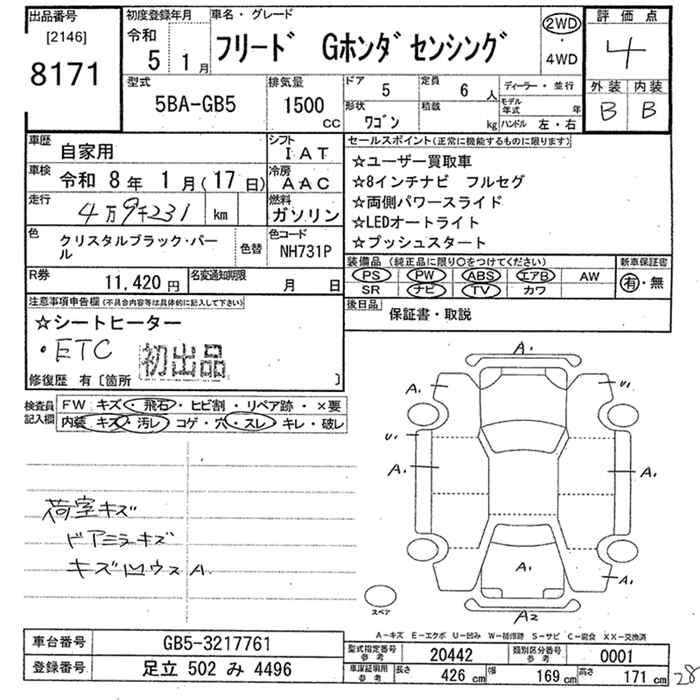 出品番号
[2146]
8171
初度登録年月
令和
5 1月
車名・グレード
フリード Gホンダセンシング
2WD
・
4WD
評価点
4
外装 内装
B B
型式
5BA-GB5
排気量
1500
CC
ドア
5
定員
6 人
形状
ワゴン
積載
kg
ディーラー・並行
モデル
年式 年
ハンドル 左・右
車歴
自家用
シフト
IAT
車検
令和 8年 1月(17日)
冷房
AAC
走行
4万9千231 km
燃料
ガソリン
色
クリスタルブラック・パー
ル
色替
色コード
NH731P
R券
11,420円
名変通知期限
月 日
セールスポイント(正常に機能するものに限ります)
☆ユーザー買取車
☆8インチナビ フルセグ
☆両側パワースライド
☆LEDオートライト
☆プッシュスタート
装備品(純正品に限り○をつけてください)
PS PW ABS エアB AW
SR ナビ TV カワ
新車保証書
有・無
後日品
保証書・取説
注意事項申告欄(不具合内容等は具体的に記入して下さい)
☆シートヒーター
・ETC
初出品
修復歴 有〔箇所 〕
検査員
記入欄
FW キズ・飛石・ヒビ割・リペア跡・×要
内装 キズ・汚レ・コゲ・穴・スレ・キレ・破レ
荷室キズ
ドアミラキズ
キズ凹ウスA.
A.
A.
U.
U.
A.
A.
A.
A.
A2
スペア
A-キズ E-エクボ U-凹み W-補修跡 S-サビ C-腐食 XX-交換済
車台番号
GB5-3217761
登録番号
足立 502 み 4496
型式指定番号
参考
20442
類別区分番号
参考
0001
車検証明用
参考
長さ
426 cm
幅
169 cm
高さ
171 cm
28